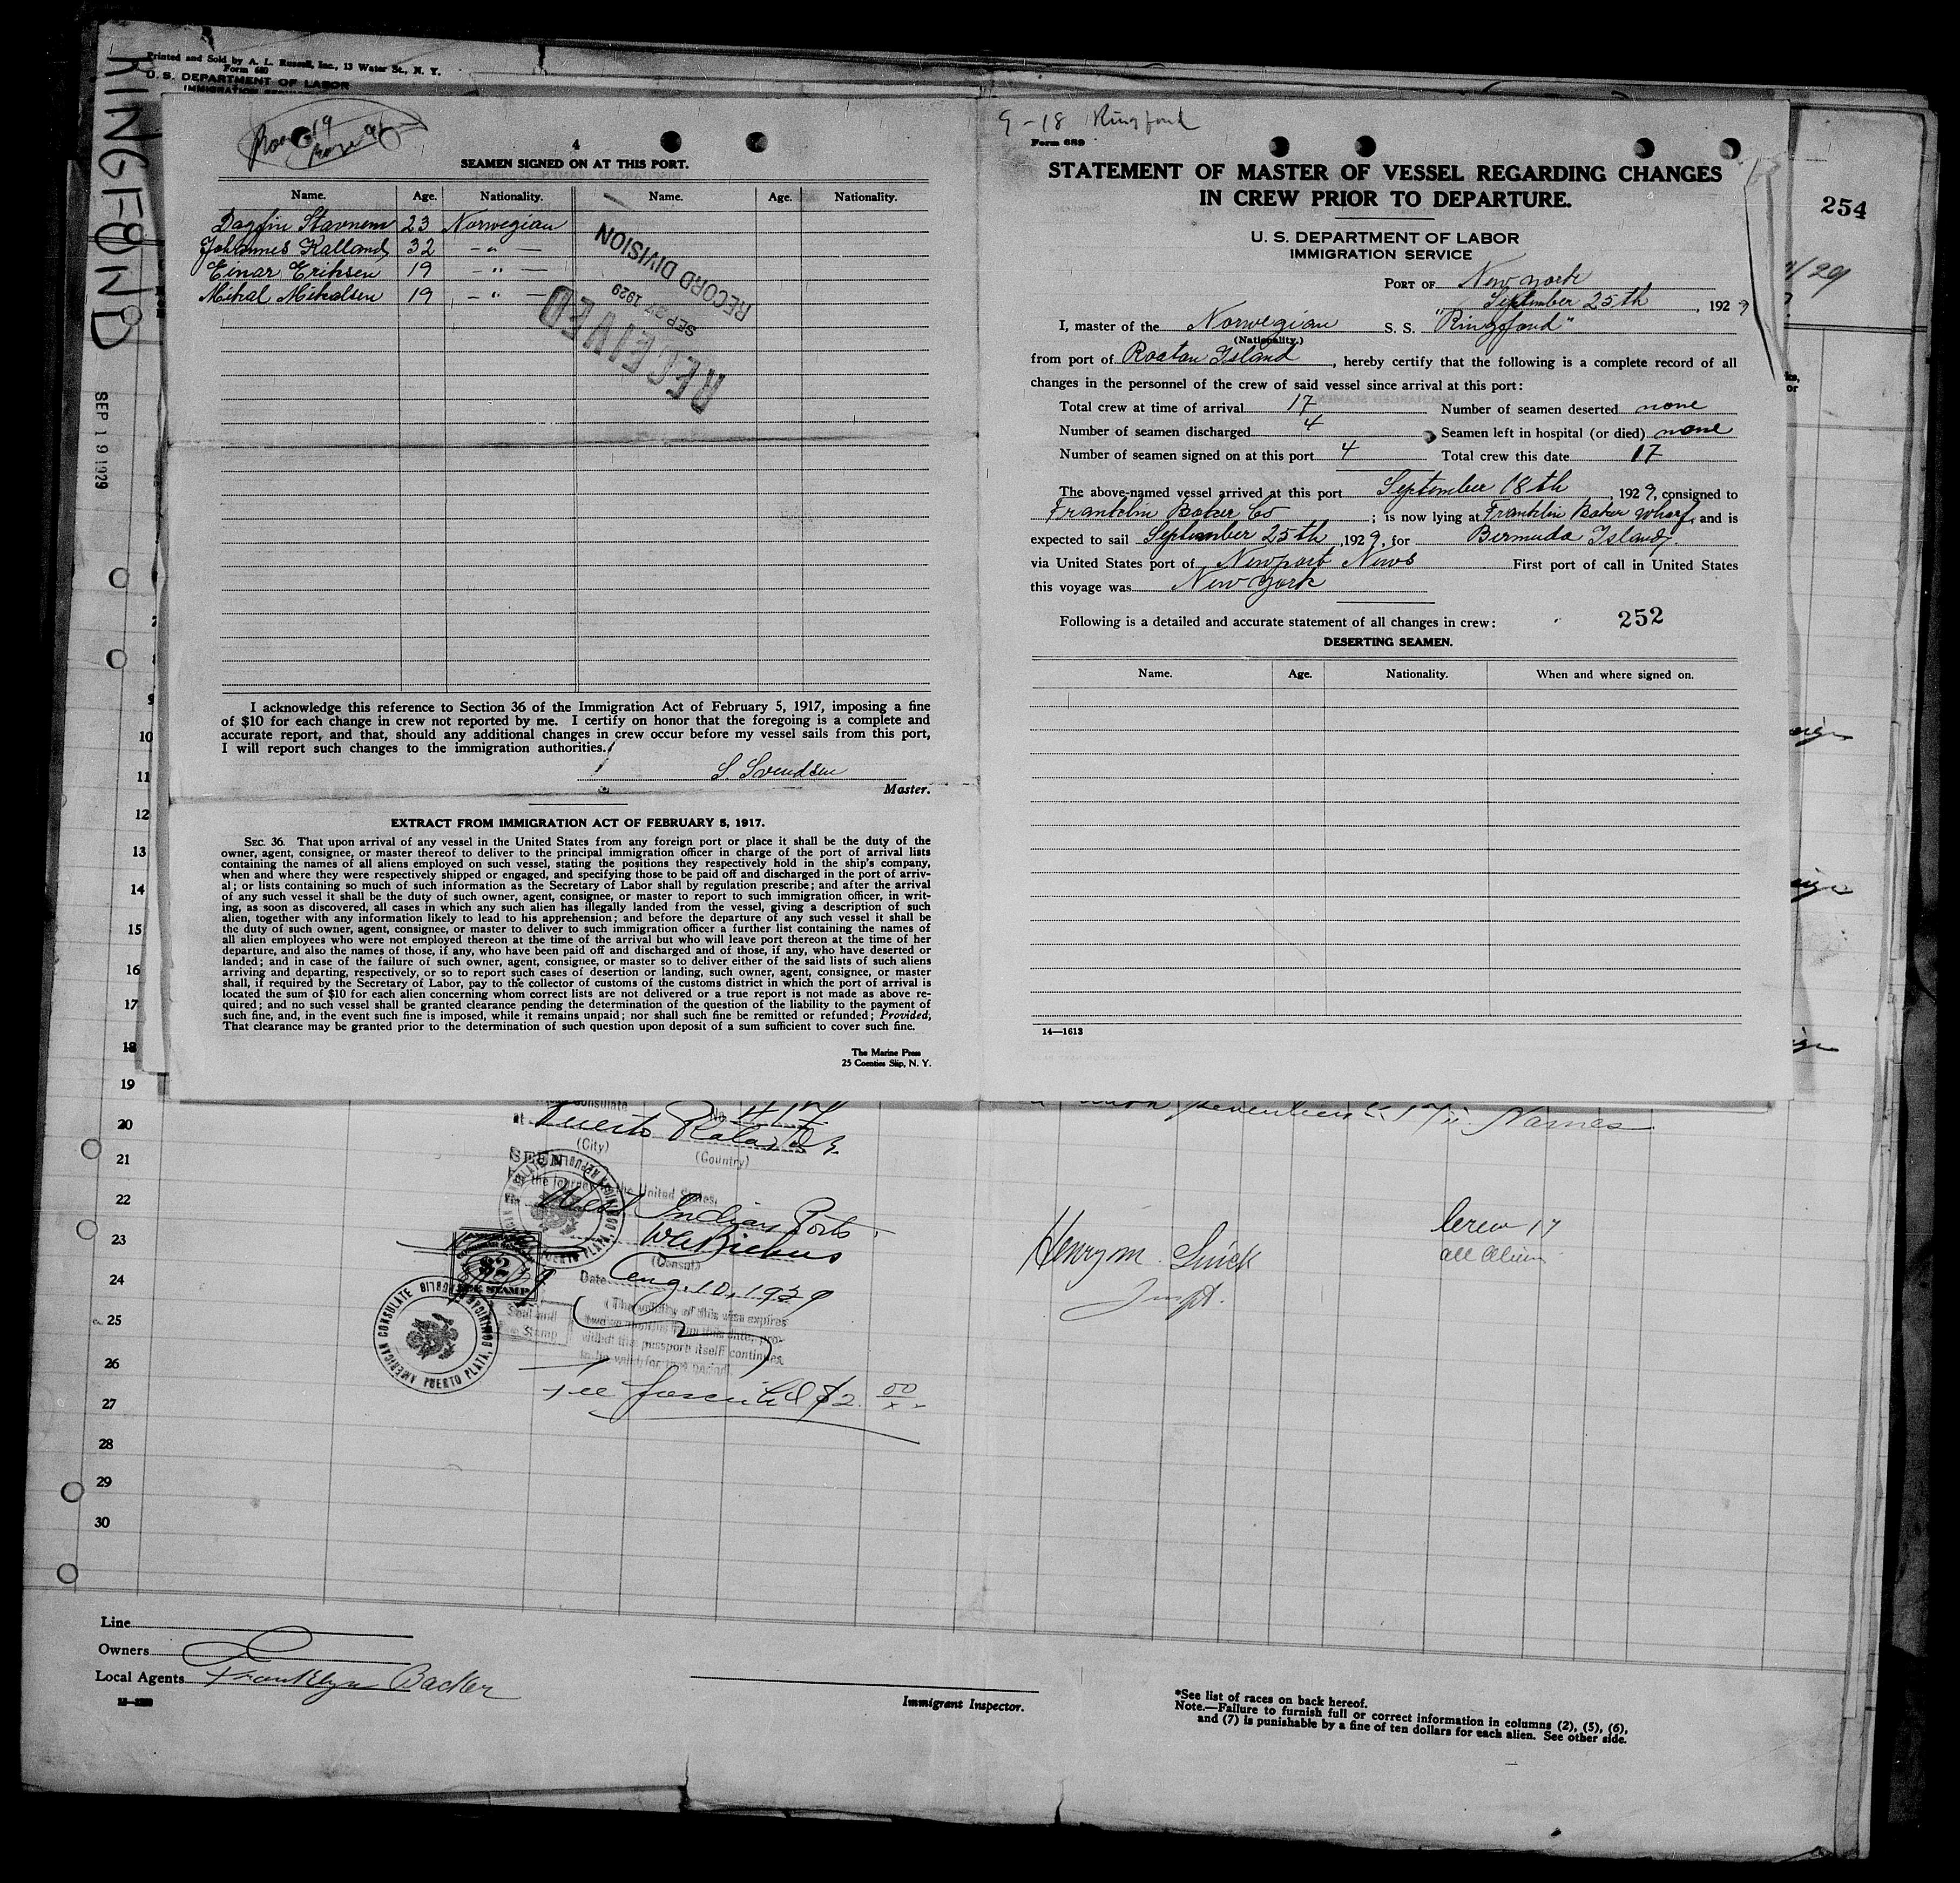 Printed and Sold by A. L. Russell, Inc., 13 Water St., N. Y.
Form 680
U. S. DEPARTMENT OF LABOR
IMMIGRATION SERVICE
RINGFOND
SEP 19 1929
4
SEAMEN SIGNED ON AT THIS PORT.
Name. Age. Nationality. Name. Age. Nationality.
Dagfin Stavnem 23 Norwegian
Johannes Kalland 32 - " -
Einar Eriksen 19 - " -
Mikal Mikalsen 19 - " -
RECEIVED
SEP 27 1929
RECORD DIVISION
I acknowledge this reference to Section 36 of the Immigration Act of February 5, 1917, imposing a fine
of $10 for each change in crew not reported by me. I certify on honor that the foregoing is a complete and
accurate report, and that, should any additional changes in crew occur before my vessel sails from this port,
I will report such changes to the immigration authorities.
S. Svendsen
Master.
EXTRACT FROM IMMIGRATION ACT OF FEBRUARY 5, 1917.
SEC. 36. That upon arrival of any vessel in the United States from any foreign port or place it shall be the duty of the
owner, agent, consignee, or master thereof to deliver to the principal immigration officer in charge of the port of arrival lists
containing the names of all aliens employed on such vessel, stating the positions they respectively hold in the ship's company,
when and where they were respectively shipped or engaged, and specifying those to be paid off and discharged in the port of arriv-
al; or lists containing so much of such information as the Secretary of Labor shall by regulation prescribe; and after the arrival
of any such vessel it shall be the duty of such owner, agent, consignee, or master to report to such immigration officer, in writ-
ing, as soon as discovered, all cases in which any such alien has illegally landed from the vessel, giving a description of such
alien, together with any information likely to lead to his apprehension; and before the departure of any such vessel it shall be
the duty of such owner, agent, consignee, or master to deliver to such immigration officer a further list containing the names of
all alien employees who were not employed thereon at the time of the arrival but who will leave port thereon at the time of her
departure, and also the names of those, if any, who have been paid off and discharged and of those, if any, who have deserted or
landed; and in case of the failure of such owner, agent, consignee, or master so to deliver either of the said lists of such aliens
arriving and departing, respectively, or so to report such cases of desertion or landing, such owner, agent, consignee, or master
shall, if required by the Secretary of Labor, pay to the collector of customs of the customs district in which the port of arrival is
located the sum of $10 for each alien concerning whom correct lists are not delivered or a true report is not made as above re-
quired; and no such vessel shall be granted clearance pending the determination of the question of the liability to the payment of
such fine, and, in the event such fine is imposed, while it remains unpaid; nor shall such fine be remitted or refunded; Provided,
That clearance may be granted prior to the determination of such question upon deposit of a sum sufficient to cover such fine.
The Marine Press
25 Coenties Slip, N. Y.
9-18 Ringfond
Form 689
STATEMENT OF MASTER OF VESSEL REGARDING CHANGES
IN CREW PRIOR TO DEPARTURE.
U. S. DEPARTMENT OF LABOR
IMMIGRATION SERVICE
PORT OF New York
September 25th, 1929
I, master of the Norwegian S. S. "Ringfond"
(Nationality.)
from port of Roatan Island, hereby certify that the following is a complete record of all
changes in the personnel of the crew of said vessel since arrival at this port:
Total crew at time of arrival 17 Number of seamen deserted none
Number of seamen discharged 4 Seamen left in hospital (or died) none
Number of seamen signed on at this port 4 Total crew this date 17
The above-named vessel arrived at this port September 18th, 1929, consigned to
Franklin Baker Co; is now lying at Franklin Baker Wharf, and is
expected to sail September 25th, 1929, for Bermuda Island,
via United States port of Newport News First port of call in United States
this voyage was New York
Following is a detailed and accurate statement of all changes in crew: 252
DESERTING SEAMEN.
Name. Age. Nationality. When and where signed on.
14—1613
254
9
10
11
12
13
14
15
16
17
18
19
20
21
22
23
24
25
26
27
28
29
30
Consulate No. 417
at Puerto Plata, D R
(City) (Country)
SEEN
the journey to the United States,
via West Indian Ports
(Consul)
Date Aug. 10, 1929
(The validity of this visa expires
twelve months from this date, pro-
vided the passport itself continues
to be valid for that period)
$2
FEE STAMP
Seal and
Fee Stamp
AMERICAN CONSULATE PUERTO PLATA, DOMINICAN REPUBLIC
AMERICAN CONSULATE PUERTO PLATA, DOMINICAN REPUBLIC
Fee $2.00
seventeen 17 Names
Henry M. Quick
Inspt.
Crew 17
all Aliens
Line
Owners
Local Agents Franklyn Backer
Immigrant Inspector.
*See list of races on back hereof.
Note.—Failure to furnish full or correct information in columns (2), (5), (6),
and (7) is punishable by a fine of ten dollars for each alien. See other side.